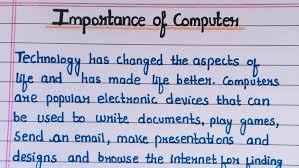 Importance of Computer
Technology has changed the aspects of
life and has made life better. Computers
are popular electronic devices that can
be used to write documents, play games,
send an email, make presentations and
designs and browse the internet for finding